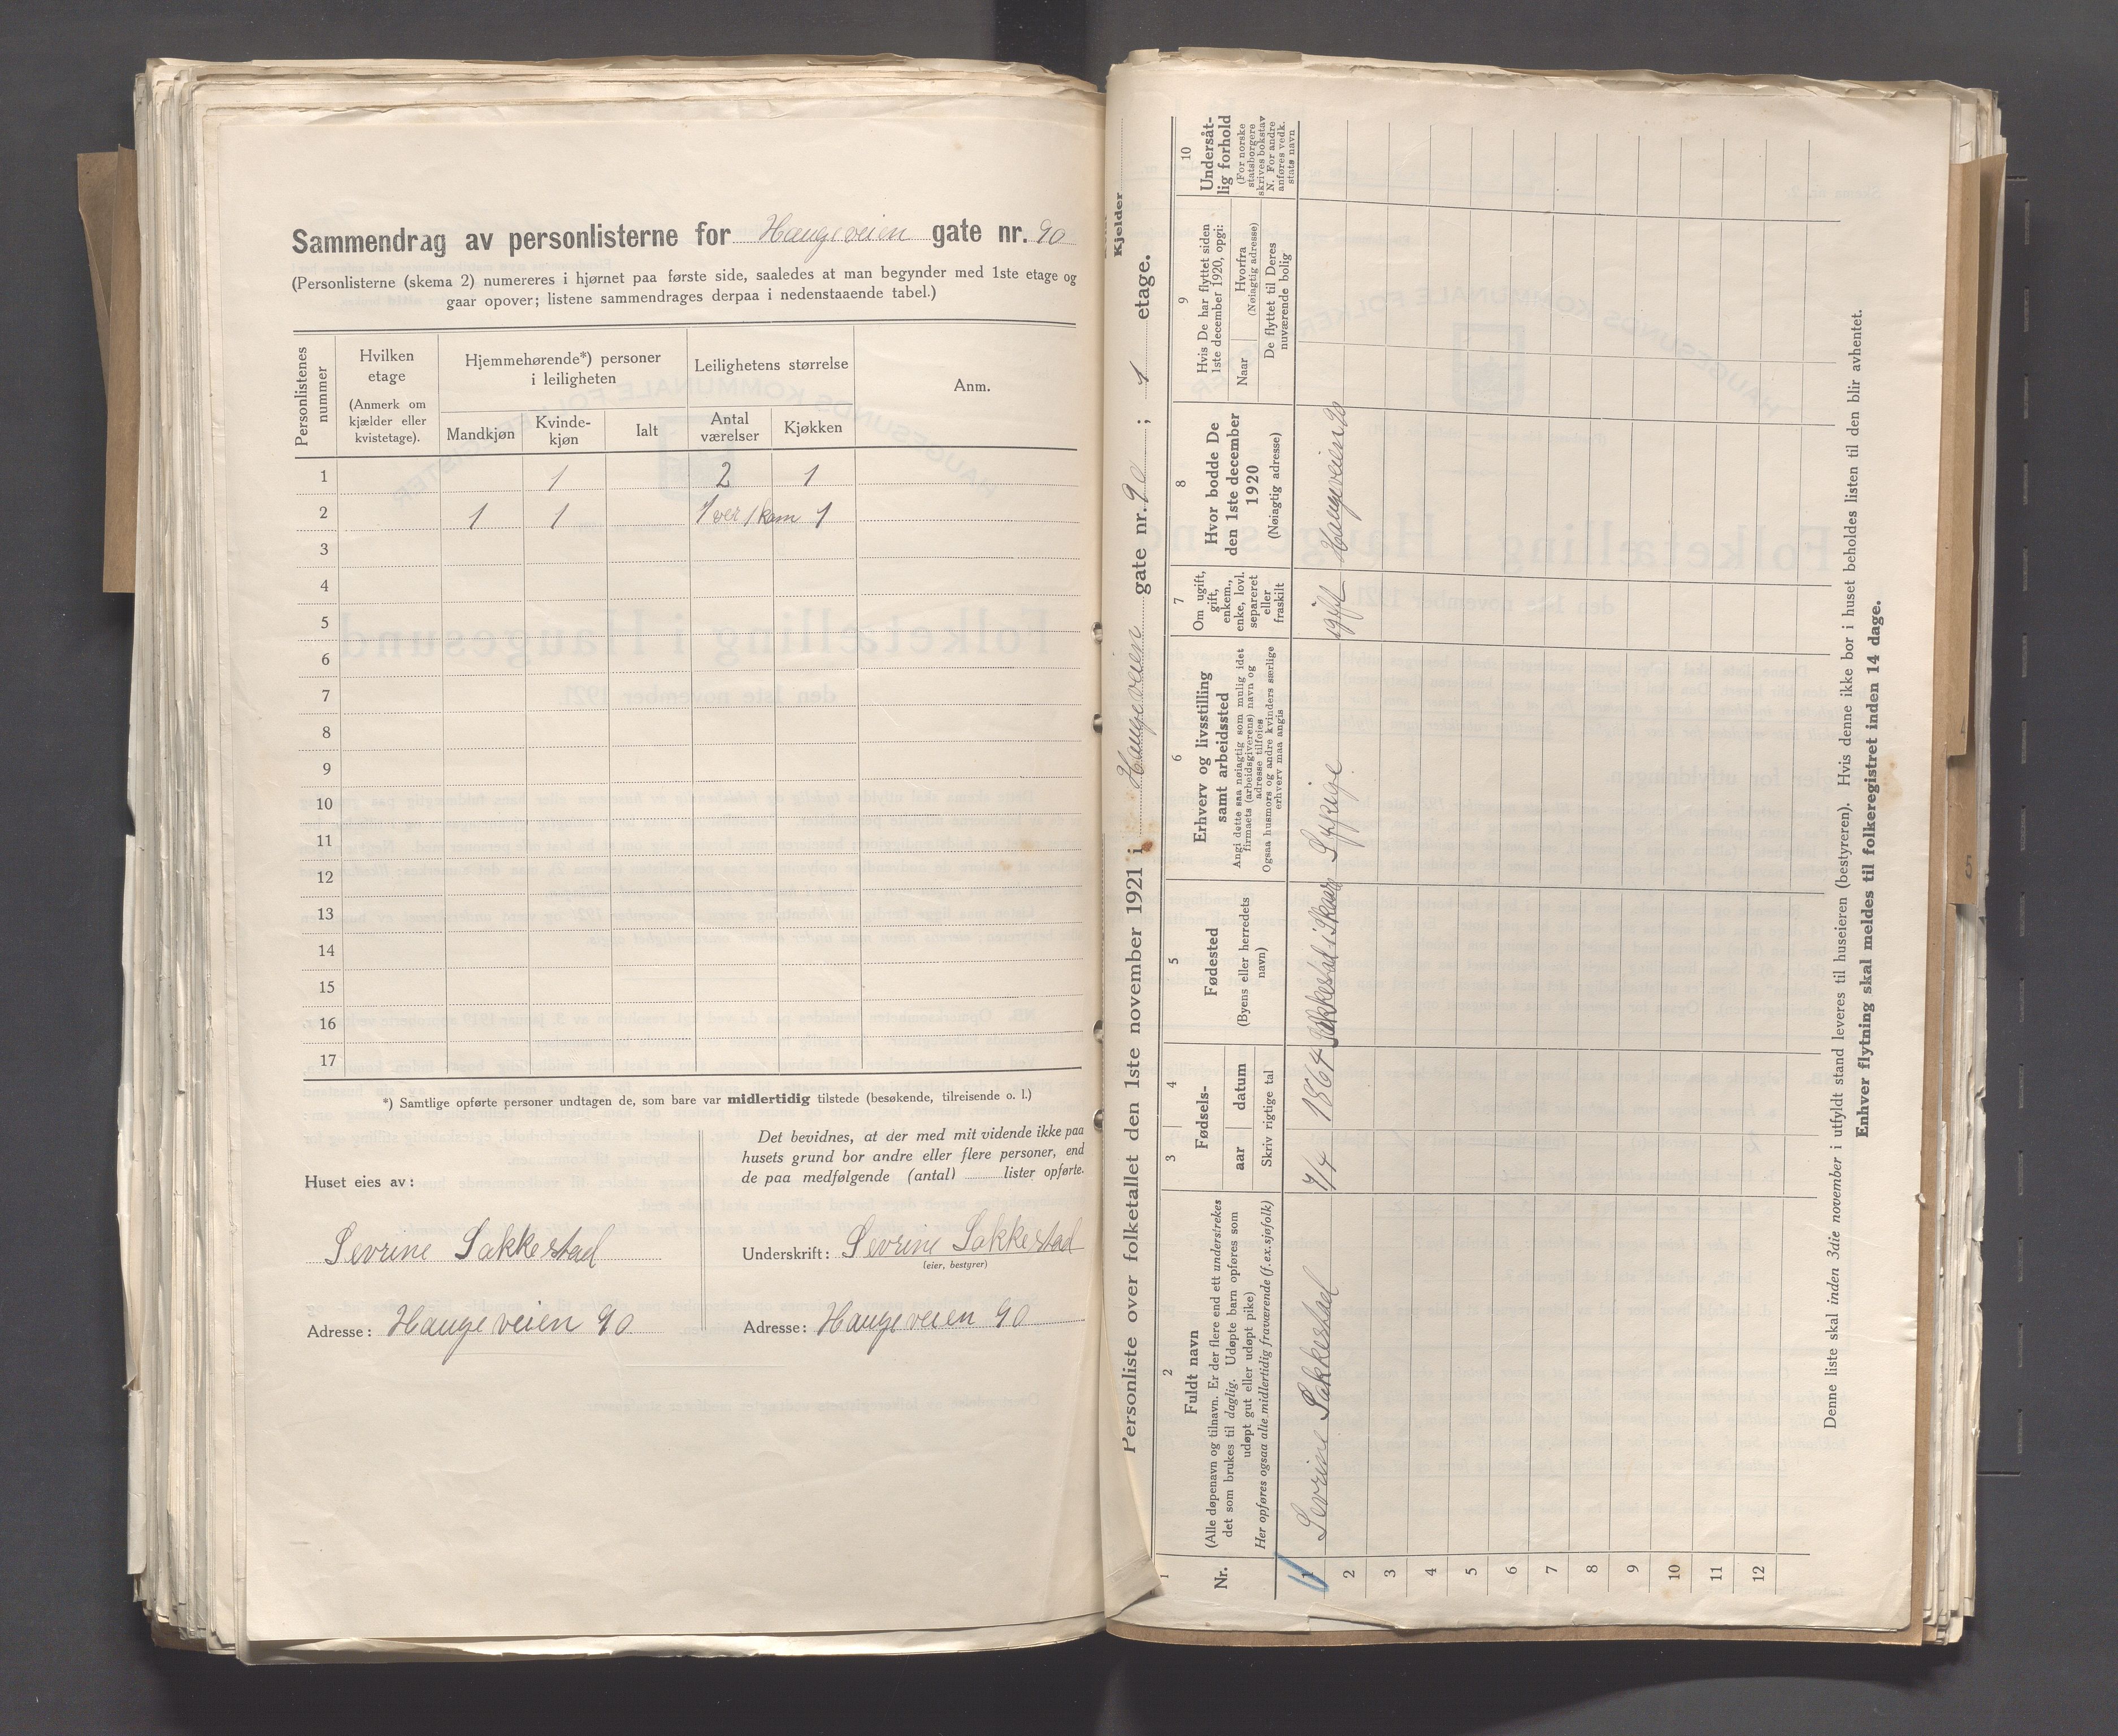 Sammendrag av personlisterne for Haugeveien gate nr. 90
(Personlisterne (skema 2) numereres i hjørnet paa første side, saaledes at man begynder med 1ste etage og
gaar opover; listene sammendrages derpaa i nedenstaaende tabel.)
Personlistenes nummer
Hvilken etage
(Anmerk om kjælder eller kvistetage).
Hjemmehørende*) personer i leiligheten
Leilighetens størrelse
Anm.
Mandkjøn
Kvindekjøn
Ialt
Antal værelser
Kjøkken
1 1 2 1
2 1 1 1 ver 1 kam 1
3
4
5
6
7
8
9
10
11
12
13
14
15
16
17
*) Samtlige opførte personer undtagen de, som bare var midlertidig tilstede (besøkende, tilreisende o. l.)
Huset eies av:
Sevrine Sakkestad
Adresse: Haugeveien 90
Det bevidnes, at der med mit vidende ikke paa
husets grund bor andre eller flere personer, end
de paa medfølgende (antal) lister opførte.
Underskrift: Sevrine Sakkestad
(eier, bestyrer)
Adresse: Haugeveien 90
Kjelder
Personliste over folketallet den 1ste november 1921 i Haugeveien gate nr. 90 ; 1 etage.
1
Nr.
2
Fuldt navn
(Alle døpenavn og tilnavn. Er der flere end ett understrekes
det som brukes til daglig. Udøpte barn opføres som
udøpt gut eller udøpt pike)
Her opføres ogsaa alle midlertidig fraværende (f.ex. sjøfolk)
3
4
Fødsels-
aar
datum
Skriv rigtige tal
5
Fødested
(Byens eller herredets navn)
6
Erhverv og livsstilling
samt arbeidssted
Angi dette saa nøiagtig som mulig idet
firmaets (arbeidsgiverens) navn og
adresse tilføies
Ogsaa husmors og andre kvinders særlige
erhverv maa angis
7
Om ugift,
gift,
enkem.,
enke, lovl.
separeret
eller
fraskilt
8
Hvor bodde De
den 1ste december
1920
(Nøiagtig adresse)
9
Hvis De har flyttet siden
1ste december 1920, opgi:
Naar
Hvorfra
(Nøiagtig adresse)
De flyttet til Deres
nuværende bolig
10
Undersåt-
lig forhold
(For norske
statsborgere
skrives bokstav
N. For andre
anføres vedk.
stats navn
1 Sevrine Sakkestad 7/4 1864 Sakkestad i Skaare Sypige ugift Haugeveien 90
2
3
4
5
6
7
8
9
10
11
12
Denne liste skal inden 3die november i utfyldt stand leveres til huseieren (bestyreren). Hvis denne ikke bor i huset beholdes listen til den blir avhentet.
Enhver flytning skal meldes til folkeregistret inden 14 dage.